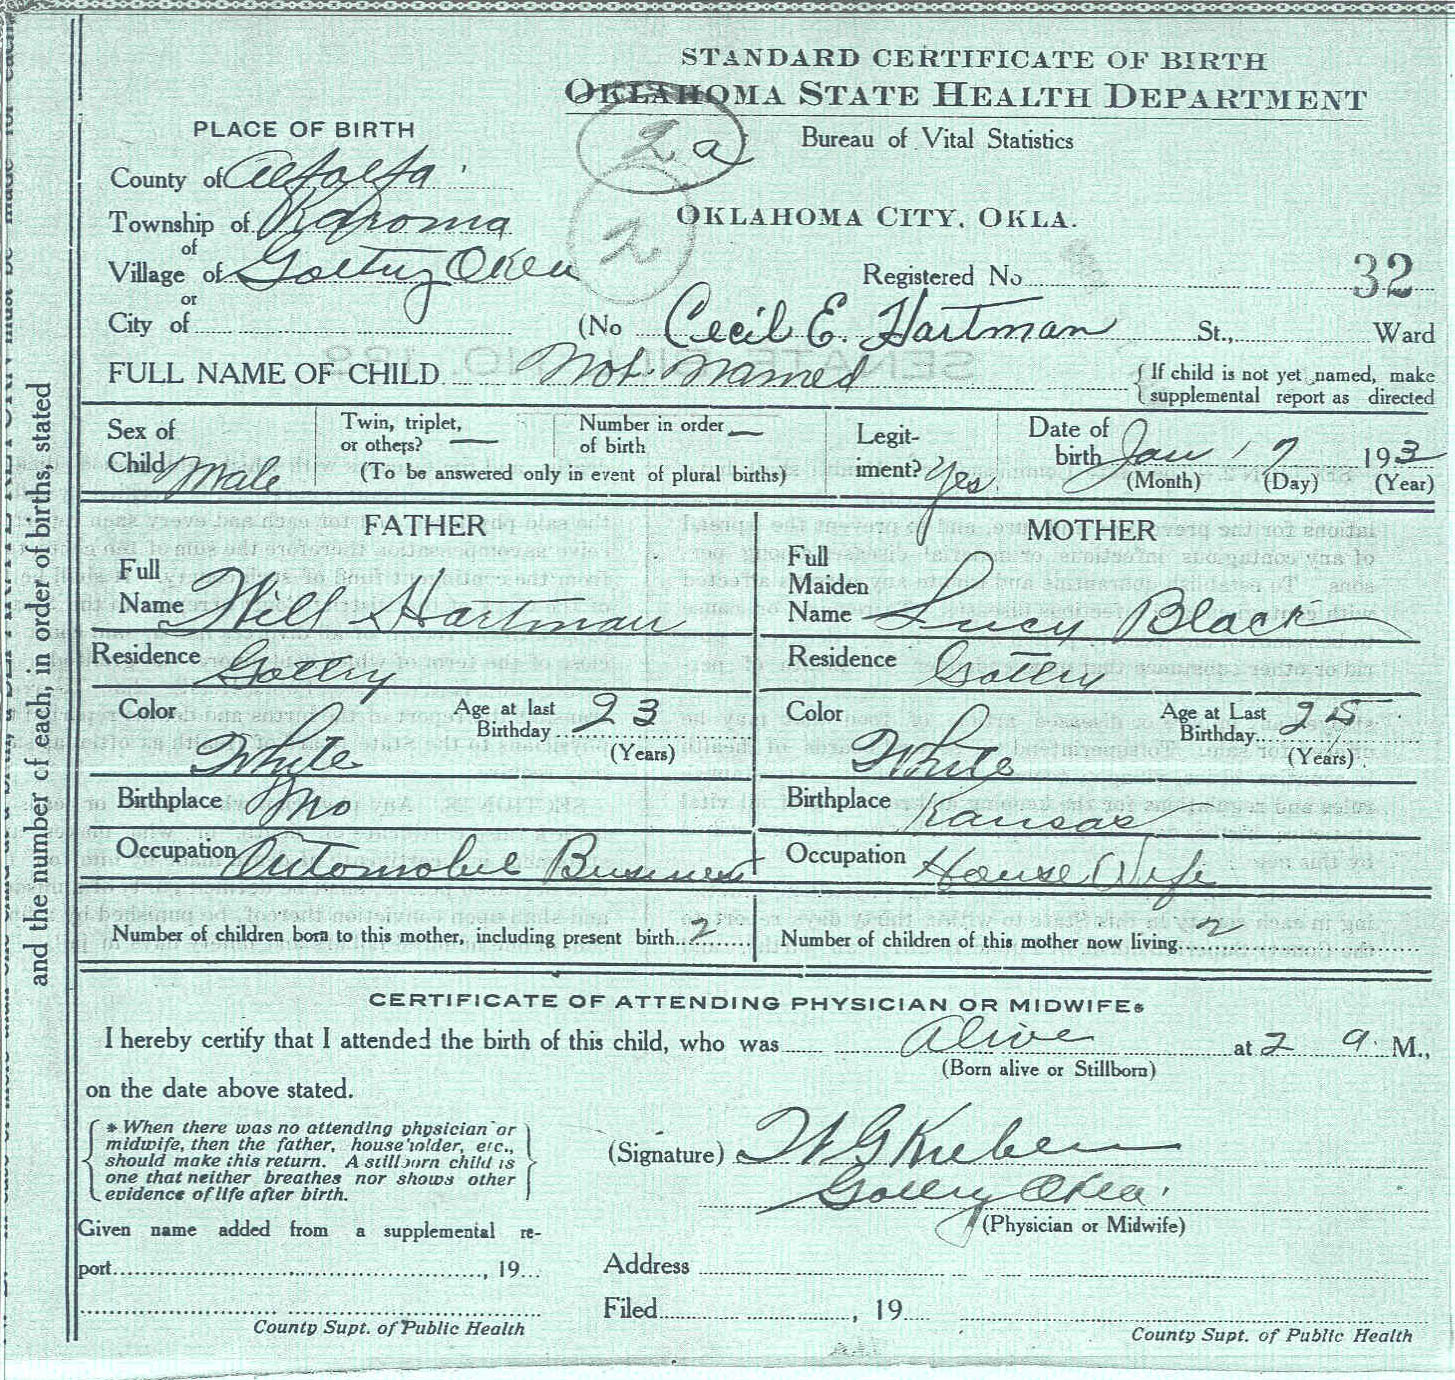 STANDARD CERTIFICATE OF BIRTH
OKLAHOMA STATE HEALTH DEPARTMENT
Bureau of Vital Statistics
OKLAHOMA CITY, OKLA.
2a
2
PLACE OF BIRTH
County of Alfalfa
Township of Karoma
of
Village of Goltry Okla
or
City of
Registered No 32
(No Cecil E. Hartman St., Ward
FULL NAME OF CHILD Not Named
{ If child is not yet named, make
supplemental report as directed
Sex of
Child Male
Twin, triplet,
or others? —
Number in order
of birth —
(To be answered only in event of plural births)
Legit-
iment? Yes
Date of
birth Jan 17 193
(Month) (Day) (Year)
FATHER
Full
Name Will Hartman
Residence Goltry
Color White
Age at last
Birthday 23
(Years)
Birthplace Mo
Occupation Automobile Business
MOTHER
Full
Maiden
Name Lucy Black
Residence Goltry
Color White
Age at Last
Birthday 25
(Years)
Birthplace Kansas
Occupation House Wife
Number of children born to this mother, including present birth 2
Number of children of this mother now living 2
CERTIFICATE OF ATTENDING PHYSICIAN OR MIDWIFE*
I hereby certify that I attended the birth of this child, who was Alive at 2 a. M.,
(Born alive or Stillborn)
on the date above stated.
* When there was no attending physician or
midwife, then the father, householder, etc.,
should make this return. A stillborn child is
one that neither breathes nor shows other
evidence of life after birth.
(Signature)
Goltry Okla.
(Physician or Midwife)
Given name added from a supplemental re-
port, 19
County Supt. of Public Health
Address
Filed, 19
County Supt. of Public Health
and the number of each, in order of births, stated